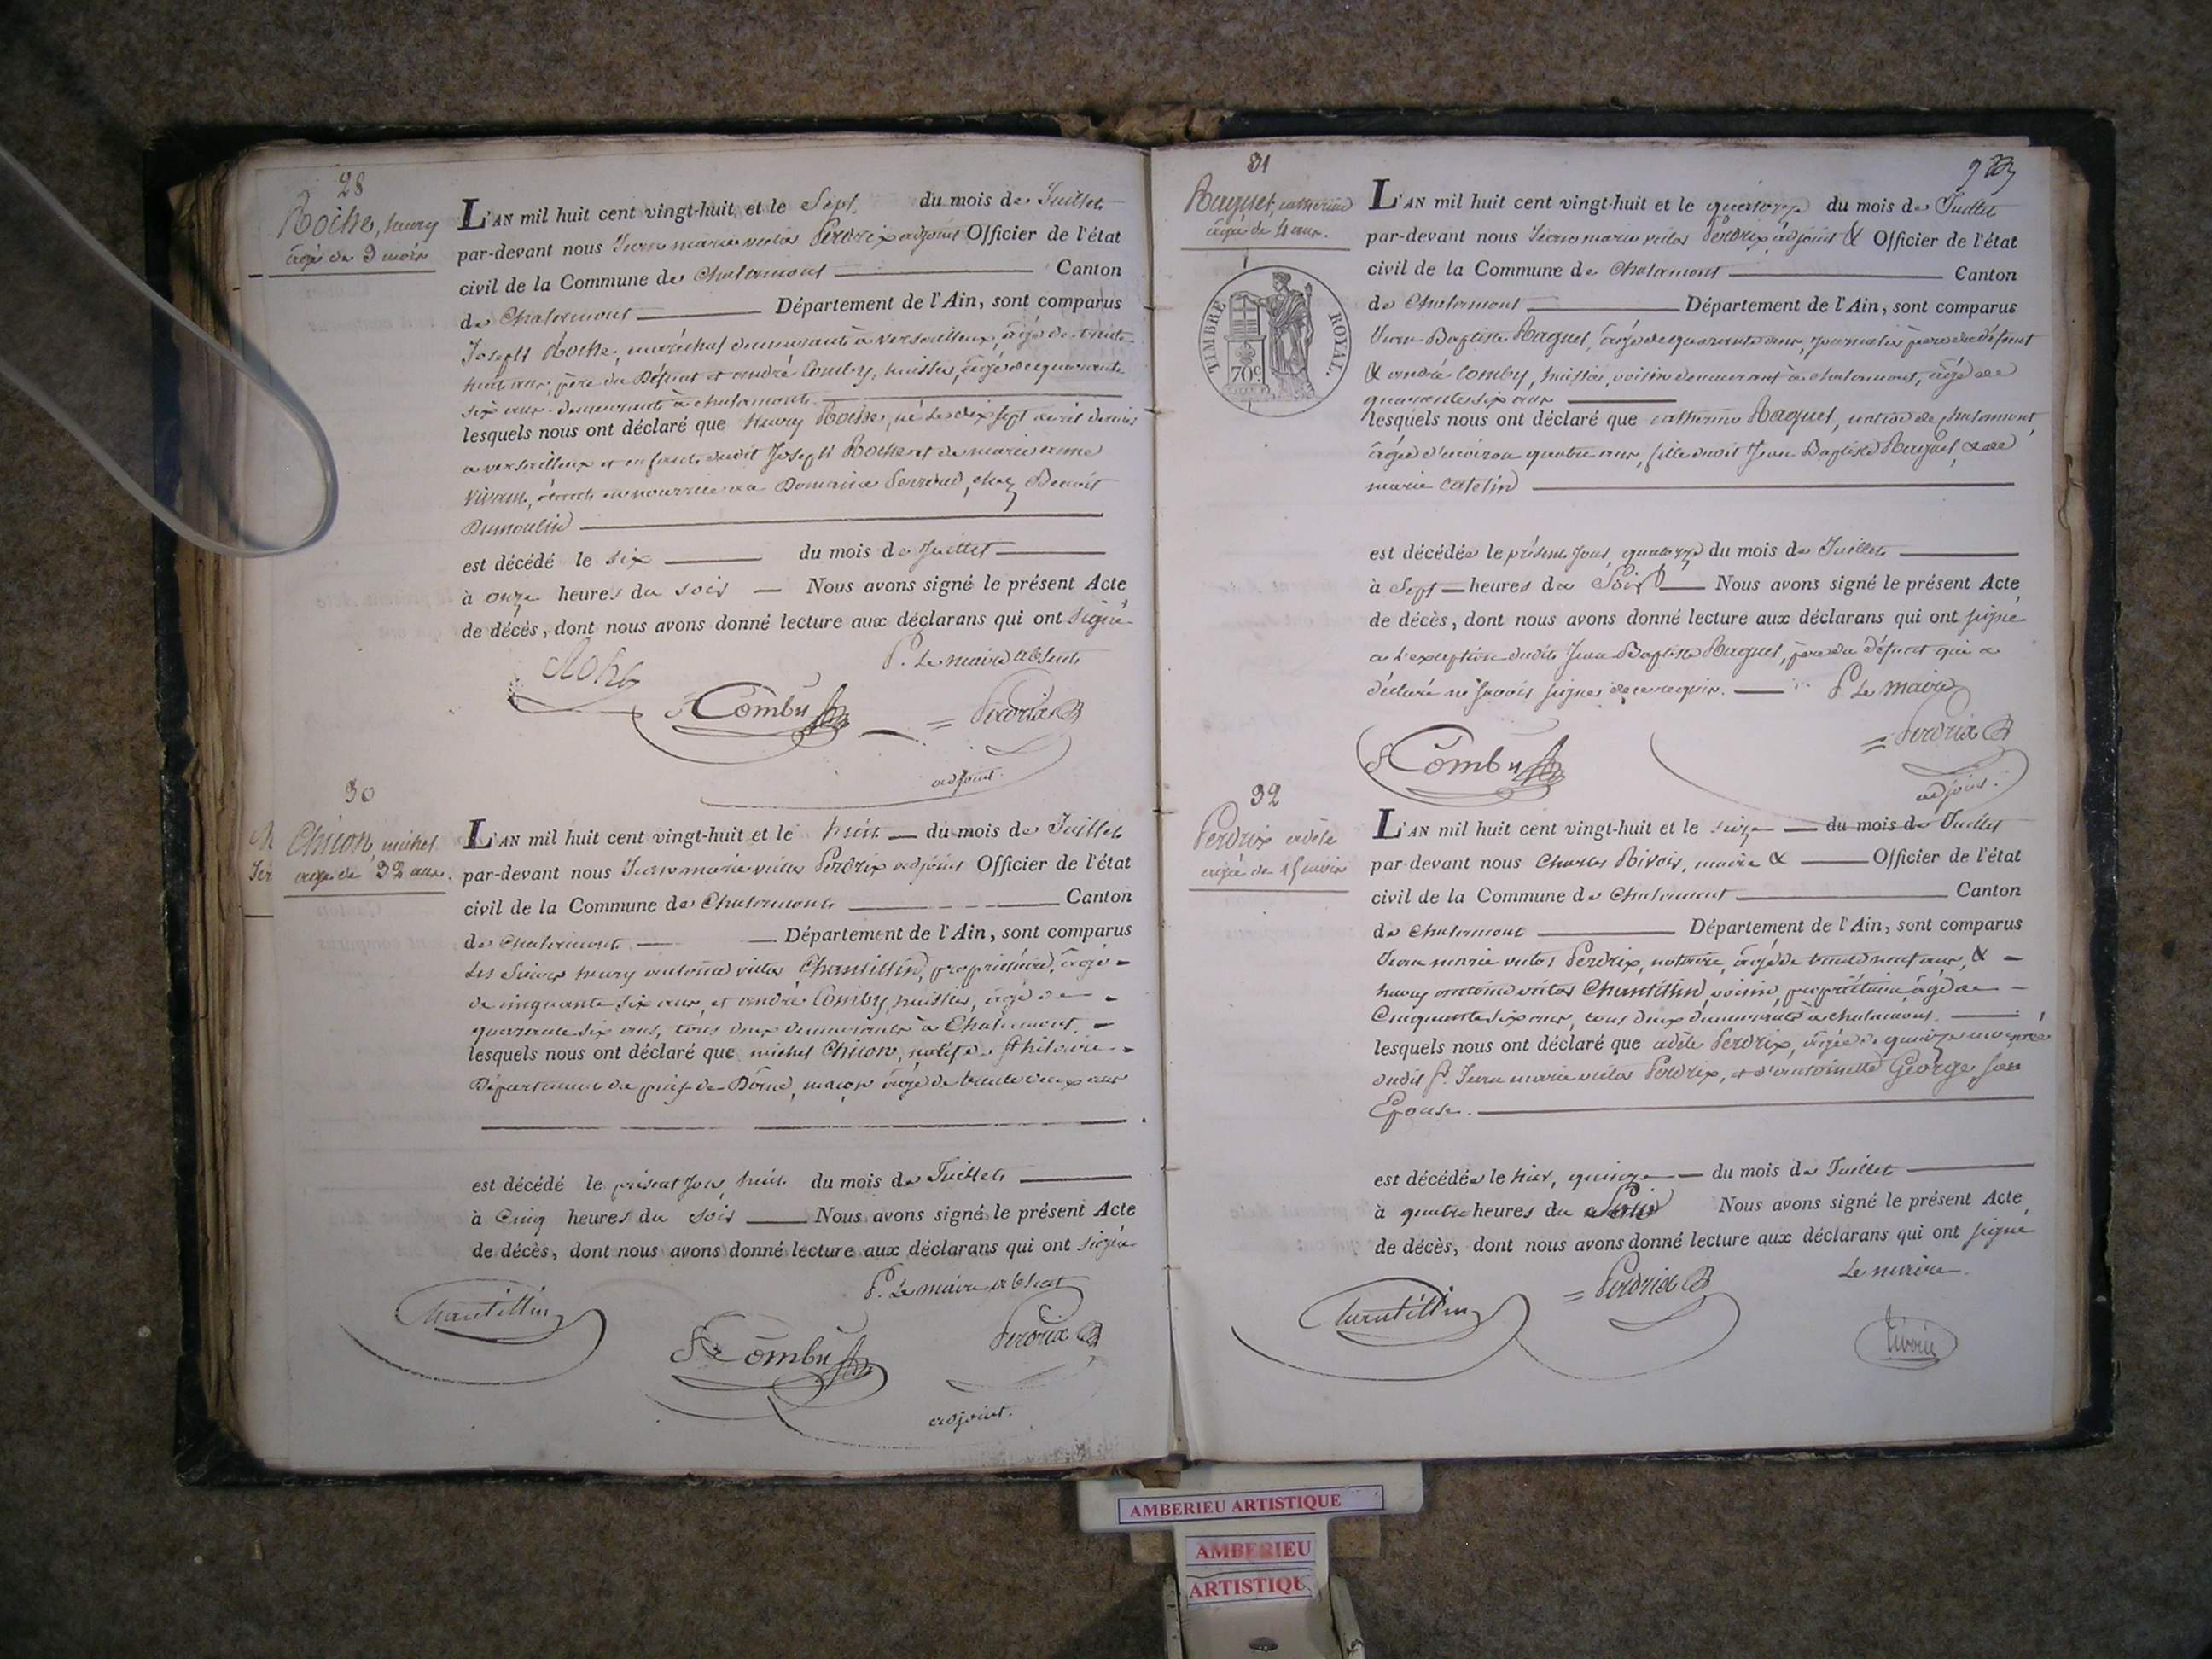 28
Roche, henry
âgé de 3 mois
L'AN mil huit cent vingt-huit et le Sept du mois de Juillet
par-devant nous Jean marie victor Perdrix adjoint Officier de l'état
civil de la Commune de Chalamont Canton
de Chalamont Département de l'Ain, sont comparus
Joseph Roche, maréchal demeurant à versailleux, âgé de trente
huit ans, père du Défunt et andré Comby, huissier, âgé de quarante
six ans demeurant à chalamont.
lesquels nous ont déclaré que henry Roche, né le dix sept avril dernier
a versailleux et enfant dudit Joseph Roche et de marie anne
vivant, en nourrice au Domaine Perroud, chez Benoit
Dumoulin
est décédé le six du mois de Juillet
à onze heures du soir Nous avons signé le présent Acte
de décès, dont nous avons donné lecture aux déclarans qui ont signé
P. Le maire absent
Comby
Perdrix
adjoint.
30
Chicon, michel
âgé de 32 ans.
L'AN mil huit cent vingt-huit et le huit du mois de Juillet
par-devant nous Jean marie victor Perdrix adjoint Officier de l'état
civil de la Commune de Chalamont Canton
de Chalamont Département de l'Ain, sont comparus
Les Sieurs henry antoine victor Chantillin, propriétaire, âgé
de cinquante six ans, et andré Comby, huissier, âgé de
quarante six ans, tous deux demeurants à Chalamont.
lesquels nous ont déclaré que michel Chicon, natif de St hilaire
Département du puy-de-Dôme, maçon âgé de trente deux ans
est décédé le présent Jour, huit du mois de Juillet
à Cinq heures du soir Nous avons signé le présent Acte
de décès, dont nous avons donné lecture aux déclarans qui ont signé
P. Le maire absent
Chantillin
Comby
Perdrix
adjoint.
31
Raquet, catherine
âgée de 4 ans.
TIMBRE ROYAL.
70c.
L'AN mil huit cent vingt-huit et le quatorze du mois de Juillet
par-devant nous Jean marie victor Perdrix adjoint & Officier de l'état
civil de la Commune de Chalamont Canton
de Chalamont Département de l'Ain, sont comparus
Jean Baptiste Raquet, âgé de quarante ans, Journalier père du défunt
& andré Comby, huissier, voisin demeurant à chalamont, âgé de
quarante six ans
lesquels nous ont déclaré que catherine Raquet, native de chalamont,
âgée d'environ quatre ans, fille dudit Jean Baptiste Raquet, & de
marie Catelin
est décédée le présent Jour, quatorze du mois de Juillet
à Sept heures du Soir Nous avons signé le présent Acte
de décès, dont nous avons donné lecture aux déclarans qui ont signé
a l'exception dudit Jean Baptiste Raquet, père du défunt qui a
déclaré ne savoir signer de ce requis. P. Le maire
Comby
Perdrix
adjoint.
32
Perdrix adèle
âgée de 15 mois
L'AN mil huit cent vingt-huit et le seize du mois de Juillet
par-devant nous Charles Rivoir, maire & Officier de l'état
civil de la Commune de Chalamont Canton
de Chalamont Département de l'Ain, sont comparus
Jean marie victor Perdrix, notaire, âgé de trente neuf ans, &
henry antoine victor Chantillin, voisin, propriétaire, âgé de
Cinquante six ans, tous deux demeurants à chalamont.
lesquels nous ont déclaré que adèle Perdrix, âgée de quinze mois, née
dudit Sr. Jean marie victor Perdrix, et d'antoinette George, son
Epouse.
est décédée le hier, quinze du mois de Juillet
à quatre heures du Soir Nous avons signé le présent Acte
de décès, dont nous avons donné lecture aux déclarans qui ont signé
Le maire.
Chantillin
Perdrix
AMBERIEU ARTISTIQUE
AMBERIEU
ARTISTIQU